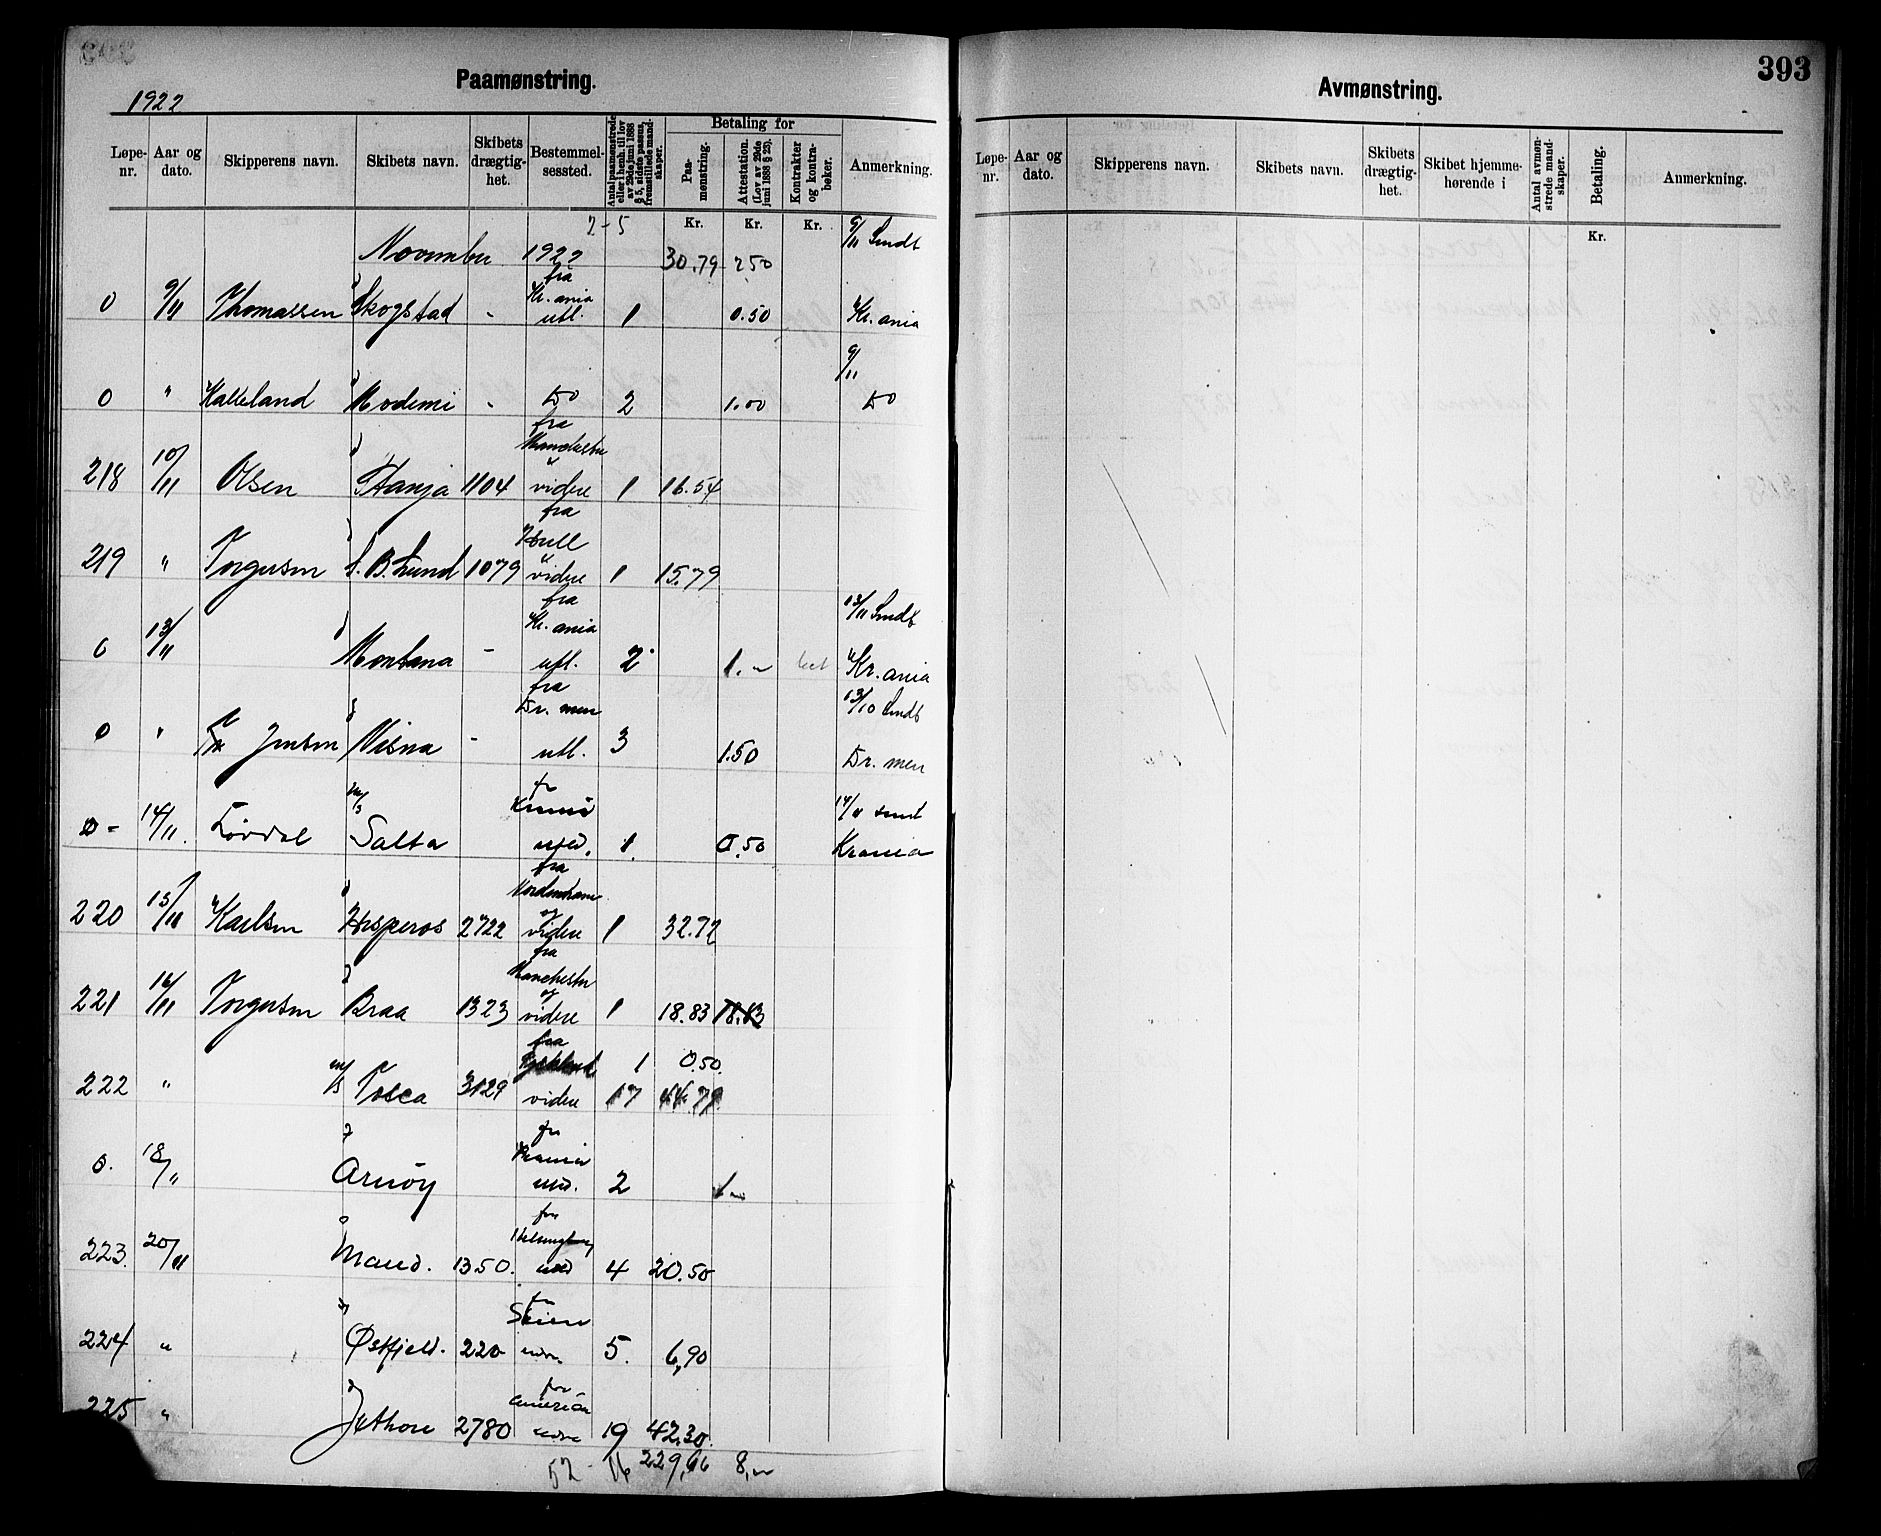 393
Paamønstring.
Avmønstring.
1922
Løpe-nr. Aar og dato. Skipperens navn. Skibets navn. Skibets drægtig-het. Bestemmel-sessted. Antal paamønstrede eller i henh. til lov av 29de juni 1888 § 5, sidste passus, fremstillede mand-skaper. Betaling for Paa-mønstring. Attestation. (Lov av 29de juni 1888 § 23). Kontrakter og kontra-bøker. Anmerkning.
Løpe-nr. Aar og dato. Skipperens navn. Skibets navn. Skibets drægtig-het. Skibet hjemme-hørende i Antal avmøn-strede mand-skaper. Betaling. Anmerkning.
2-5 Kr. Kr. Kr. 9/11 Sendt
Kr.
November 1922 30.79 2.50
fra
Kr.ania
0 9/11 Thomassen Skogstad - utl. 1 0.50 Kr.ania
9/11
0 " Kalleland Modemi - Do 2 1.00 Do
fra
Manchester
218 10/11 Olsen Stanja 1104 videre 1 16.54
fra
Hull
219 " Torgersen S.B. Lund 1079 videre 1 15.79
fra
Kr.ania 13/11 Sendt
0 13/11 Montana - utl. 2 1.- Kr.ania
fra
Dr.men 13/10 Sendt
0 " Jensen Visna - utl. 3 1.50 Dr.men
m/s fr 14/11 sendt
0 - 14/11. Løvdal Salta 1. 0.50 Krania
fra
Nordenham
og
220 15/11 Karlsen Hesperos 2722 videre 1 32.72
fra
Manchester
og
221 16/11 Torgersen Braa 1323 videre 1 18.83 18.83
fra
1 0.50
222 " m/s Tosca 3129 videre 17 44.79
fr
Krania
0. 18/11 Arnøy 2 1.-
fra
Helsingborg
223. 20/11 Maud. 1350. 4 20.50
Skien
224 " Østfjeld. 220 5. 6,90
fra
America
225 " Jethou 2780 19 42,30.
52 - 16 229,66 8,-